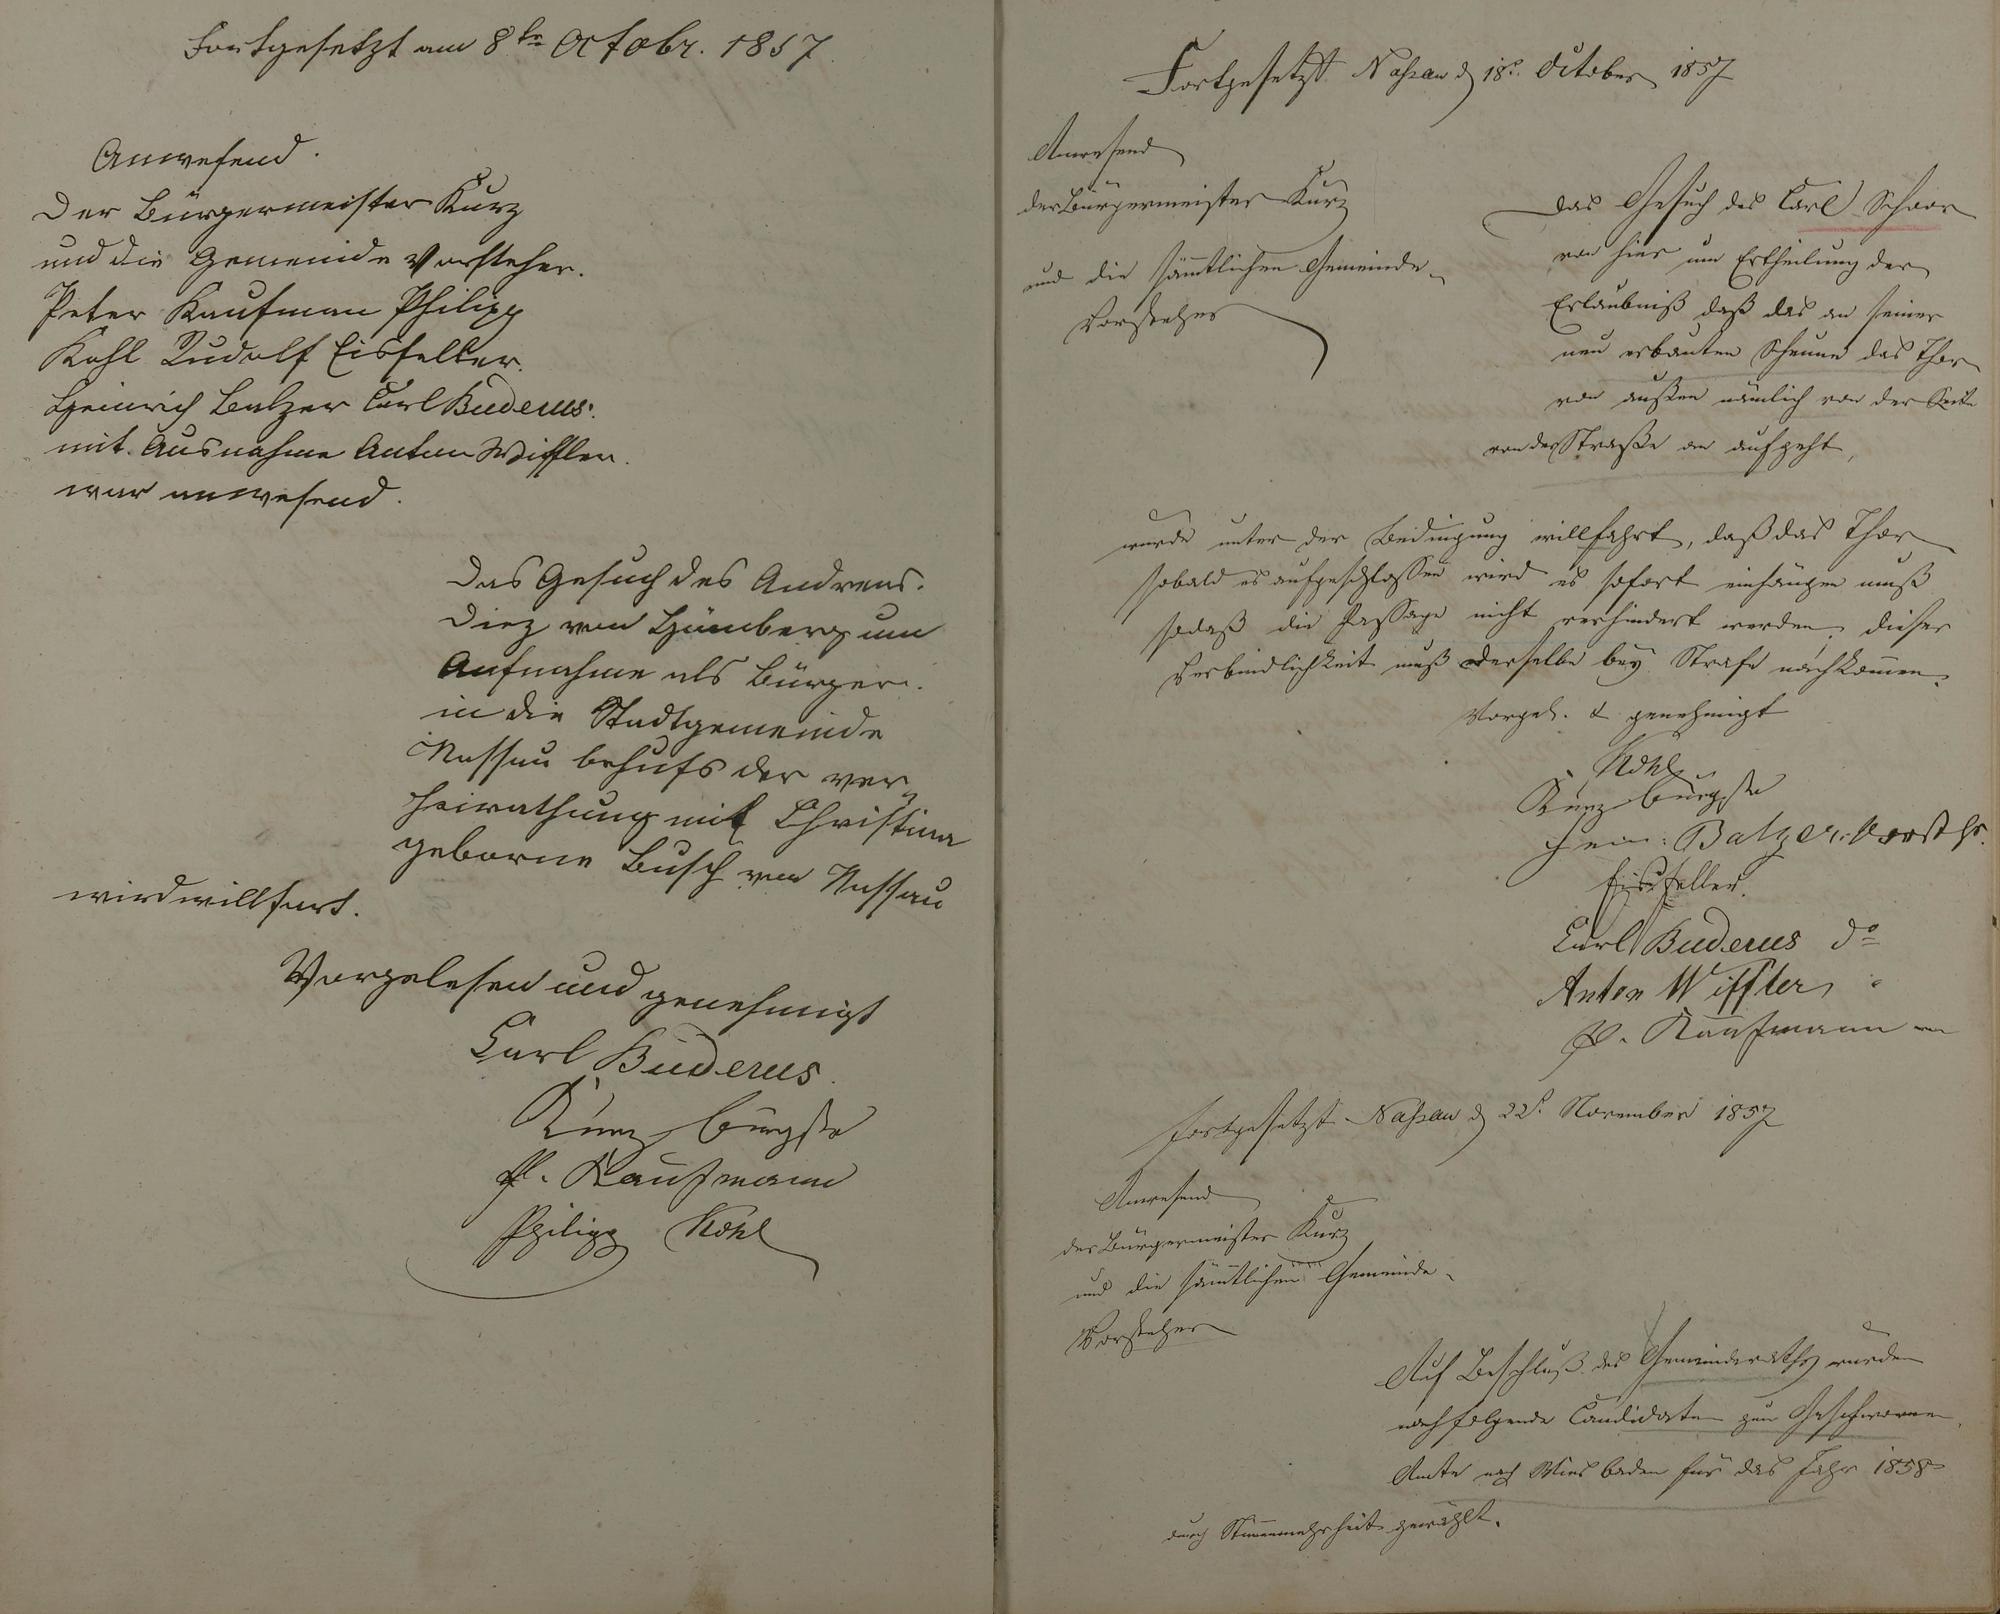 Fortgesetzt am 8ten Octobr. 1857
Anwesend.
Der Bürgermeister Kurz
und die Gemeinde Vorsteher.
Peter Kaufman Philipp
Kohl Rudolf Eisfeller.
Heinrich Balzer Carl Buderus.
mit Ausnahme Anton Wiffler.
war anwesend.
Das Gesuch des Andreas.
Diez von Hömberg um
Aufnahme als Bürger.
in die Stadtgemeinde
Nassau behufs der ver
heirathung mit Christina
geborne Busch von Nassau
wird willfart.
Vorgelesen und genehmigt
Carl Buderus.
Kurz Bürgstr
P. Kaufmann
Philipp Kohl
Fortgesetzt Nassau d 18t. October 1857
Anwesend
der Bürgermeister Kurz
und die sämtlichen Gemeinde-
Vorsteher
Das Gesuch des Carl Schaar
von hier um Ertheilung der
Erlaubniß daß das an seiner
neu erbauten Scheune das Thor
von außen nämlich von der Seite
von der Straße an aufgeht,
wurde unter der Bedingung willfahrt, daß das Thor
sobald es aufgeschlossen wird es sofort einhängen muß
sodaß die Passage nicht verhindert werden, dieser
Verbindlichkeit muß derselbe bey Strafe nachkommen.
Vorgel. & genehmigt
Kohl
Kurz Bürgstr
Hein: Balzer. Vorsthr.
Eisfeller.
Carl Buderus do
Anton Wiffler,
P. Kaufmann
Fortgesetzt Nassau d 22t. November 1857
Anwesend
der Bürgermeister Kurz
und die sämtlichen Gemeinde-
Vorsteher
Auf Beschluß des Gemeinderaths wurden
nachfolgende Candidaten zum Geschworenen
Amte nach Wiesbaden für das Jahr 1858
durch Stimmenmehrheit gewählt.